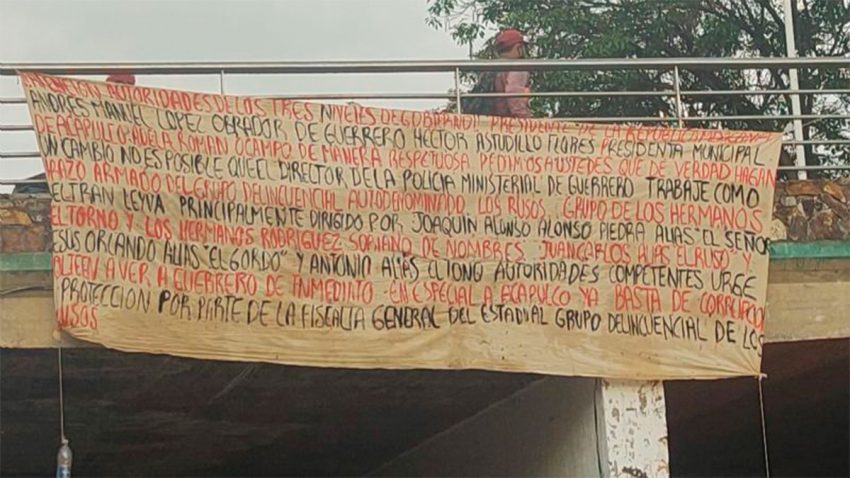 AUTORIDADES DE LOS TRES NIVELES DE GOBIERNO!! PRESIDENTE DE LA REPUBLICA
ANDRES MANUEL LOPEZ OBRADOR DE GUERRERO HECTOR ASTUDILLO FLORES PRESIDENTA MUNICIPAL
DE ACAPULCO ADELA ROMAN OCAMPO DE MANERA RESPETUOSA PEDIMOS A USTEDES QUE DE VERDAD HAGAN
UN CAMBIO NO ES POSIBLE QUE EL DIRECTOR DE LA POLICIA MINISTERIAL DE GUERRERO TRABAJE COMO
RAZO ARMADO DEL GRUPO DELINCUENCIAL AUTODENOMINADO LOS RUSOS. GRUPO DE LOS HERMANOS
ELTRAN LEYVA PRINCIPALMENTE DIRIGIDO POR JOAQUIN ALONSO ALONSO PIEDRA ALIAS "EL SEÑOR
EL TORNO Y LOS HERMANOS RODRIGUEZ SORIANO DE NOMBRES. JUAN CARLOS ALIAS "EL RUSO" Y
ESUS ORLANDO ALIAS "EL GORDO" Y ANTONIO ALIAS EL TONG AUTORIDADES COMPETENTES URGE
A VER A GUERRERO DE INMEDIATO. EN ESPECIAL A ACAPULCO YA BASTA DE
PROTECCION POR PARTE DE LA FISCALIA GENERAL DEL ESTADI AL GRUPO DELINCUENCIAL DE LOS
USOS